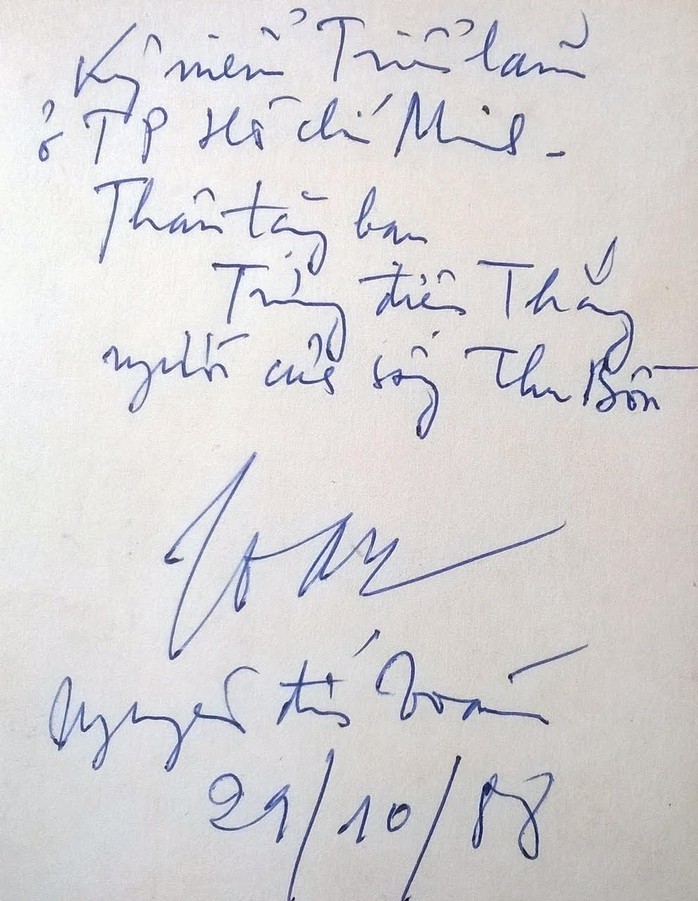 Kỷ niệm Triển lãm
ở TP Hồ Chí Minh -
Thân tặng bạn
Trương điện Thắng
người của sông Thu Bồn
Nguyễn đức Toàn
29/10/88